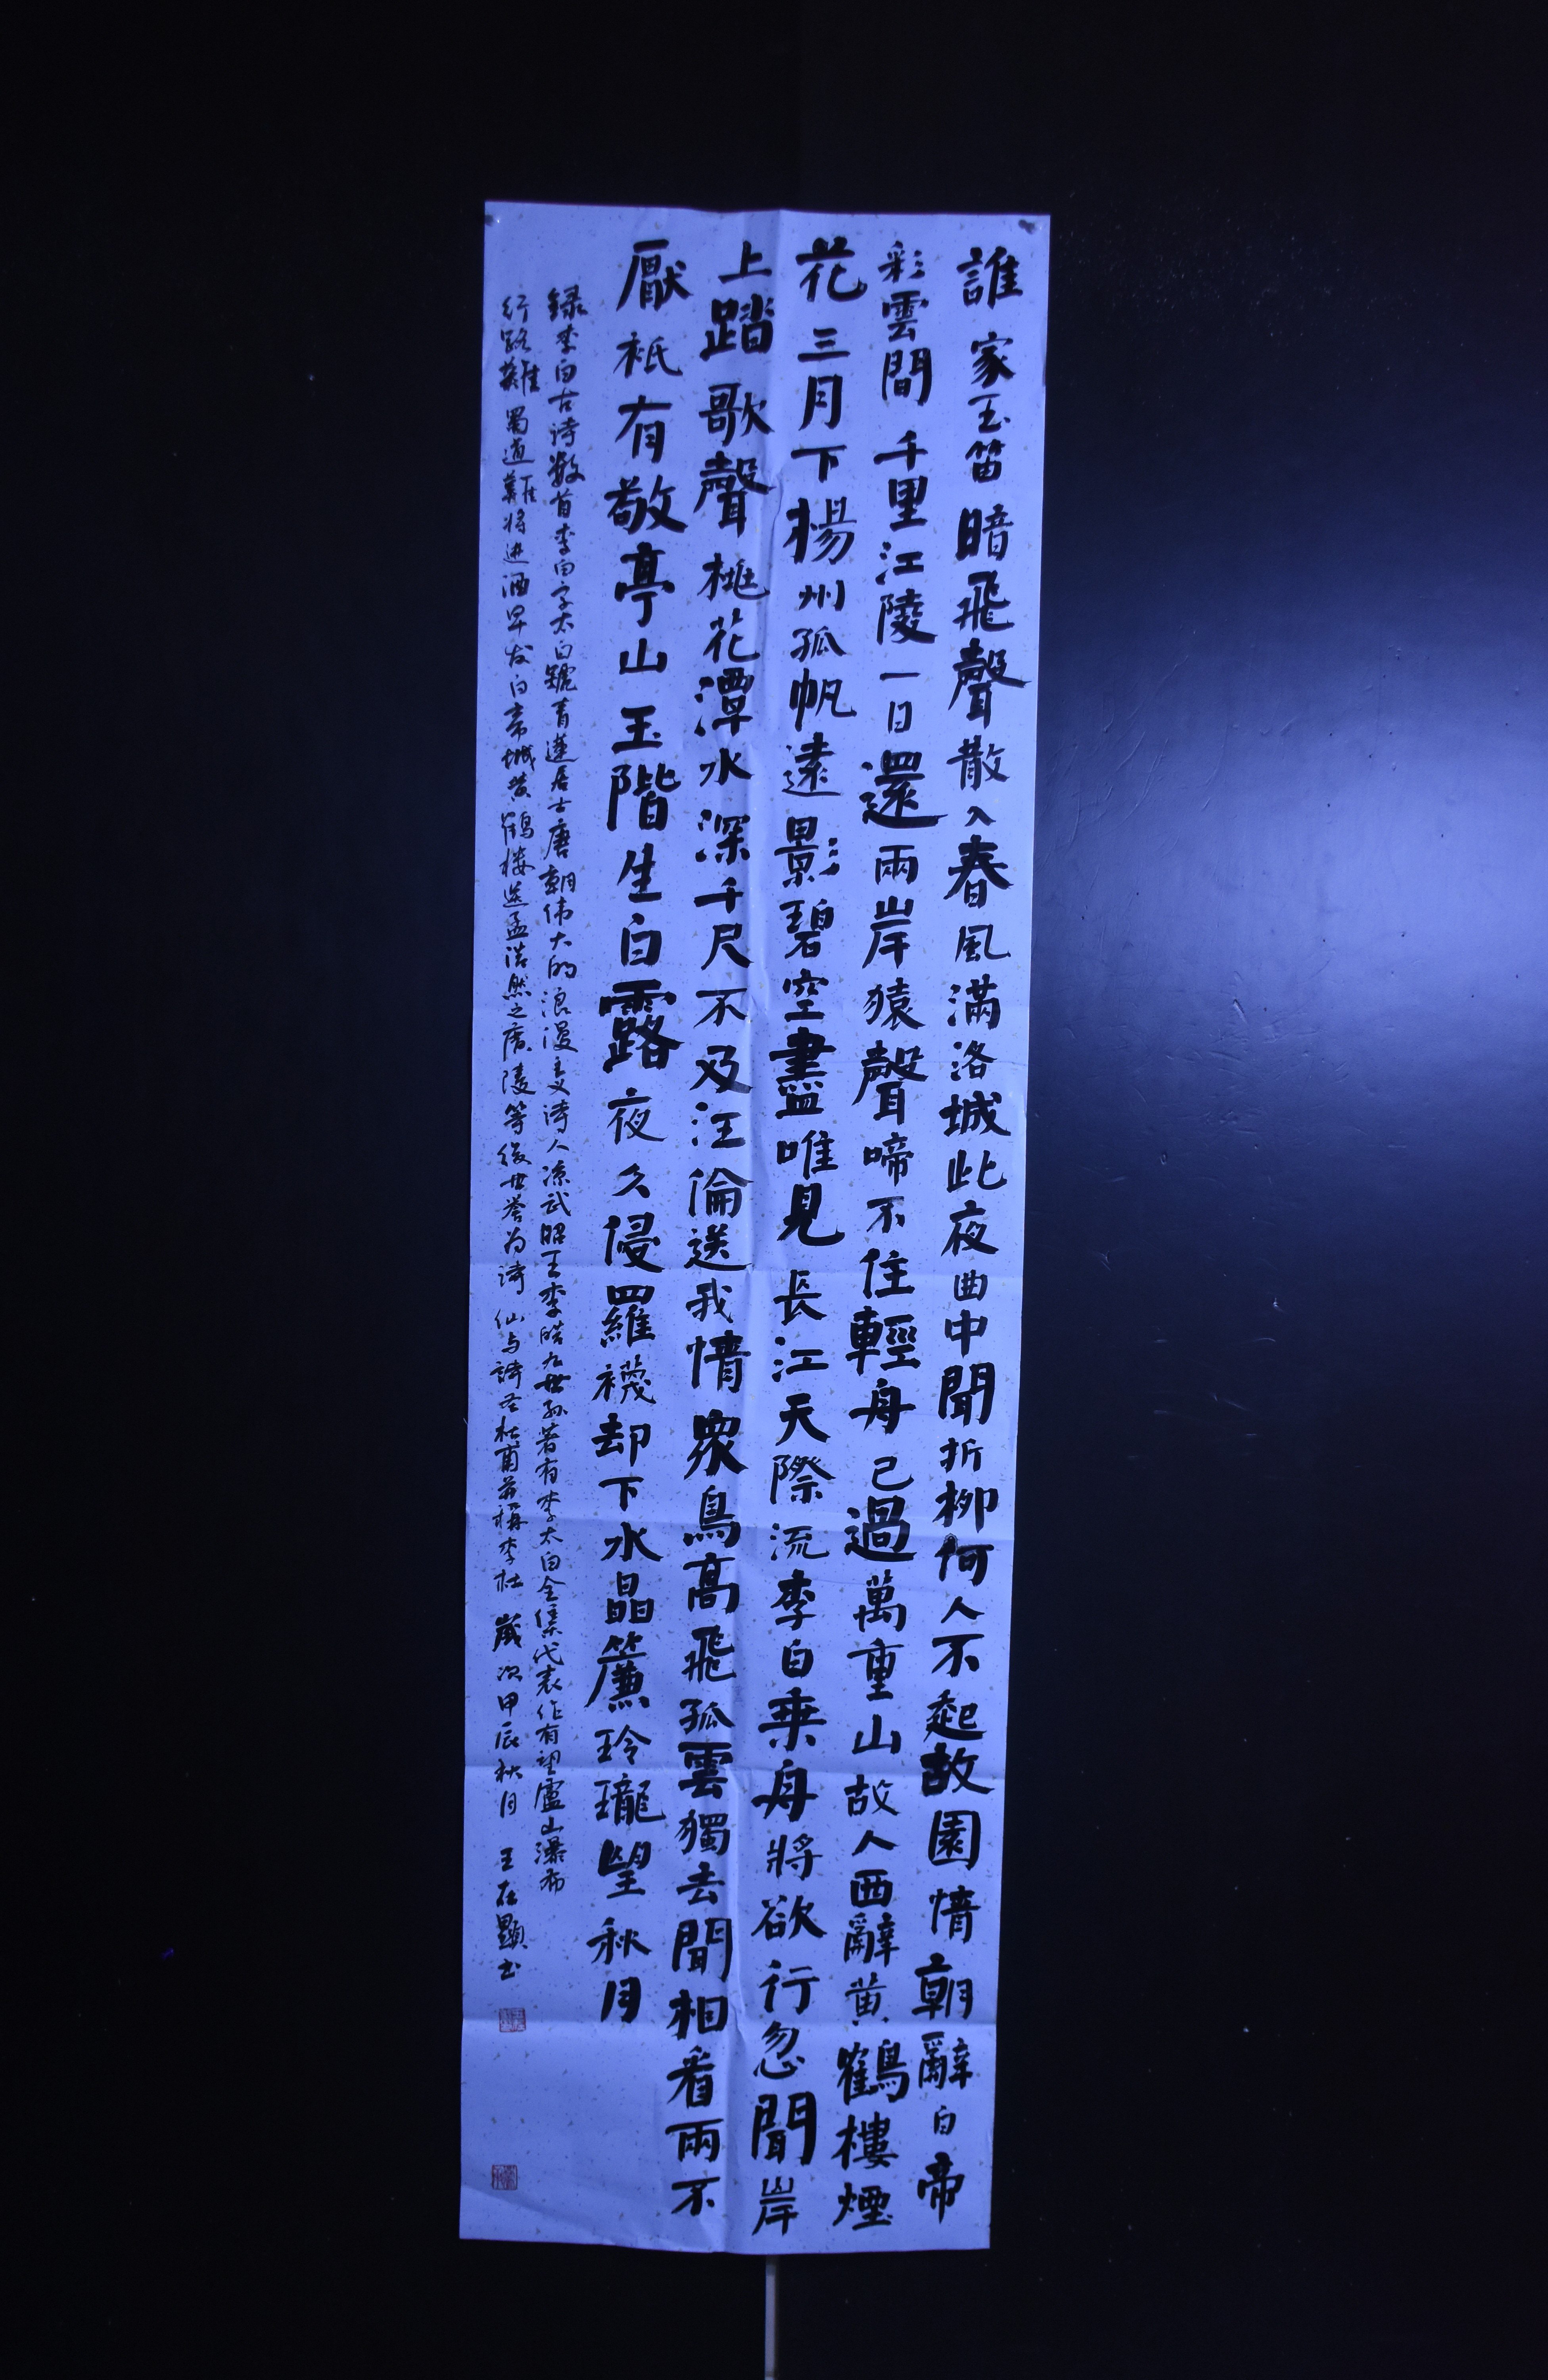 誰家玉笛暗飛聲散入春風滿洛城此夜曲中聞折柳何人不起故園情朝辭白帝
彩雲間千里江陵一日還兩岸猿聲啼不住輕舟已過萬重山故人西辭黃鶴樓煙
花三月下楊州孤帆遠影碧空盡唯見長江天際流李白乘舟將欲行忽聞岸
上踏歌聲桃花潭水深千尺不及汪倫送我情眾鳥高飛孤雲獨去閒相看兩不
厭衹有敬亭山玉階生白露夜久侵羅襪却下水晶簾玲瓏望秋月
録李白古诗数首李白字太白號青蓮居士唐朝伟大的浪漫主义诗人凉武昭王李皓九世孙著有李太白全集代表作有望廬山瀑布
行路難蜀道難将进酒早发白帝城黄鶴楼送孟浩然之廣陵等後世誉为詩仙与詩圣杜甫並稱李杜歲次甲辰秋月王在顯书